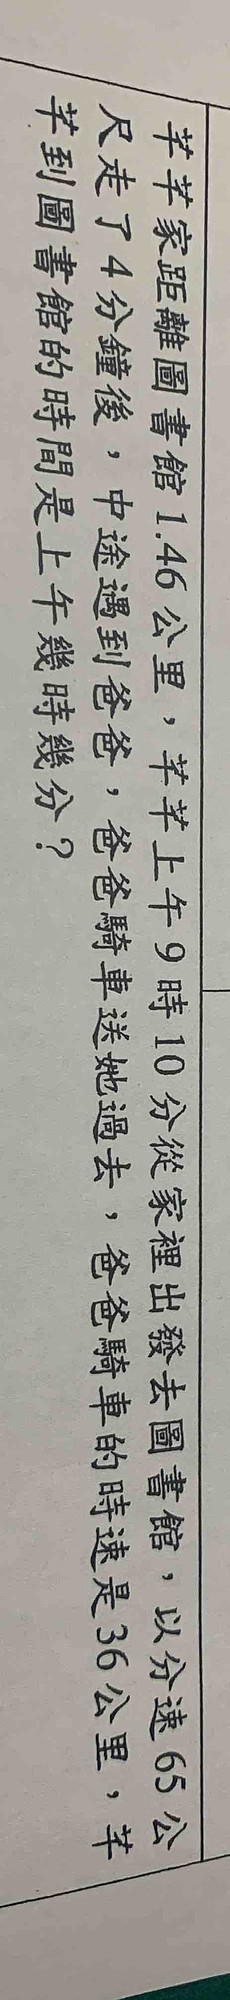 芊芊家距離圖書館1.46公里，芊芊上午9時10分從家裡出發去圖書館，以分速65公
尺走了4分鐘後，中途遇到爸爸，爸爸騎車送她過去，爸爸騎車的時速是36公里，芊
芊到圖書館的時間是上午幾時幾分？